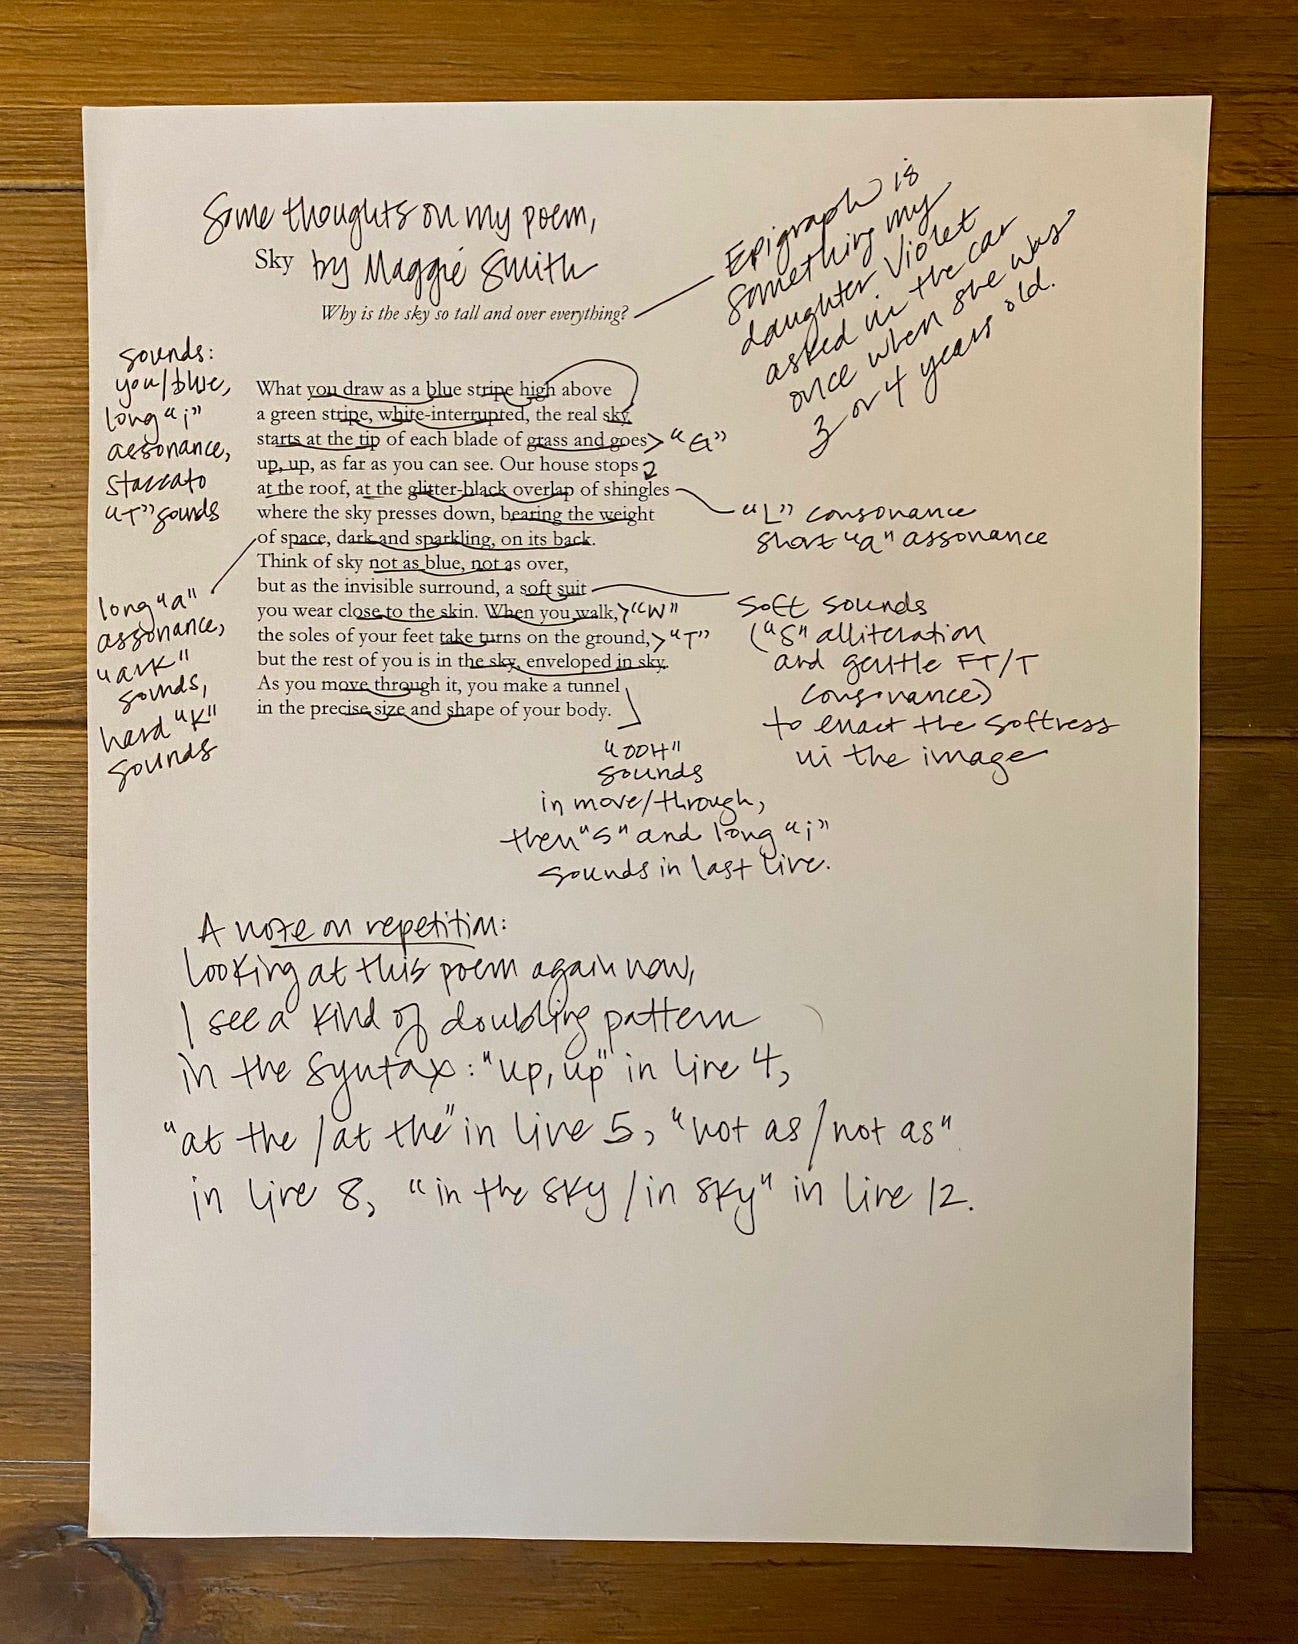 Some thoughts on my poem,
Sky by Maggie Smith
Why is the sky so tall and over everything?
Epigraph is
something my
daughter Violet
asked in the car
once when she was
3 or 4 years old.
sounds:
you/blue,
long "i"
assonance,
staccato
"T" sounds
What you draw as a blue stripe high above
a green stripe, white-interrupted, the real sky
starts at the tip of each blade of grass and goes > "G"
up, up, as far as you can see. Our house stops
at the roof, at the glitter-black overlap of shingles
where the sky presses down, bearing the weight
of space, dark and sparkling, on its back.
Think of sky not as blue, not as over,
but as the invisible surround, a soft suit
you wear close to the skin. When you walk, > "W"
the soles of your feet take turns on the ground, > "T"
but the rest of you is in the sky, enveloped in sky.
As you move through it, you make a tunnel
in the precise size and shape of your body.
"L" consonance
short "a" assonance
long "a"
assonance,
"ark"
sounds,
hard "K"
sounds
soft sounds
("S" alliteration
and gentle FT/T
consonance)
to enact the softness
in the image
"OOH"
sounds
in move/through,
then "S" and long "i"
sounds in last line.
A note on repetition:
Looking at this poem again now,
I see a kind of doubling pattern
in the syntax: "up, up" in line 4,
"at the / at the" in line 5, "not as / not as"
in line 8, "in the sky / in sky" in line 12.